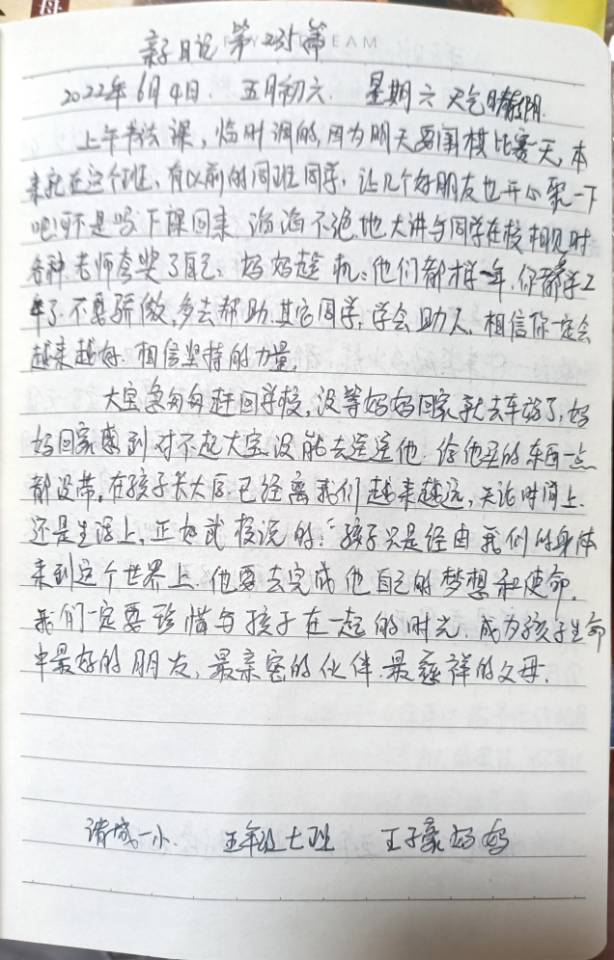 母
亲子日记 第235篇
2022年6月4日. 五月初六. 星期六 天气晴转阴.
上午书法课,临时调的,因为明天要围棋比赛一天,本
来就在这个班、有以前的同班同学,让几个好朋友也开心聚一下
吧!可不是吗 下课回来 滔滔不绝地大讲与同学在校相见时
各种老师夸奖了自己,妈妈趁机:他们都才学一年,你都学2
年了.不要骄傲,多去帮助.其它同学,学会助人,相信你一定会
越来越好.相信坚持的力量,
大宝急匆匆赶回学校,没等妈妈回家就去车站了,妈
妈回家感到对不起大宝,没能去送送他.给他买的东西一点
都没带,在孩子长大后.已经离我们越来越远,无论时间上.
还是生活上,正如武校说的:"孩子只是经由我们的身体
来到这个世界上.他要去完成他自己的梦想和使命.
我们一定要珍惜与孩子在一起的时光.成为孩子生命
中最好的朋友,最亲密的伙伴.最慈祥的父母.
诸城一小. 五年级七班 王子豪妈妈